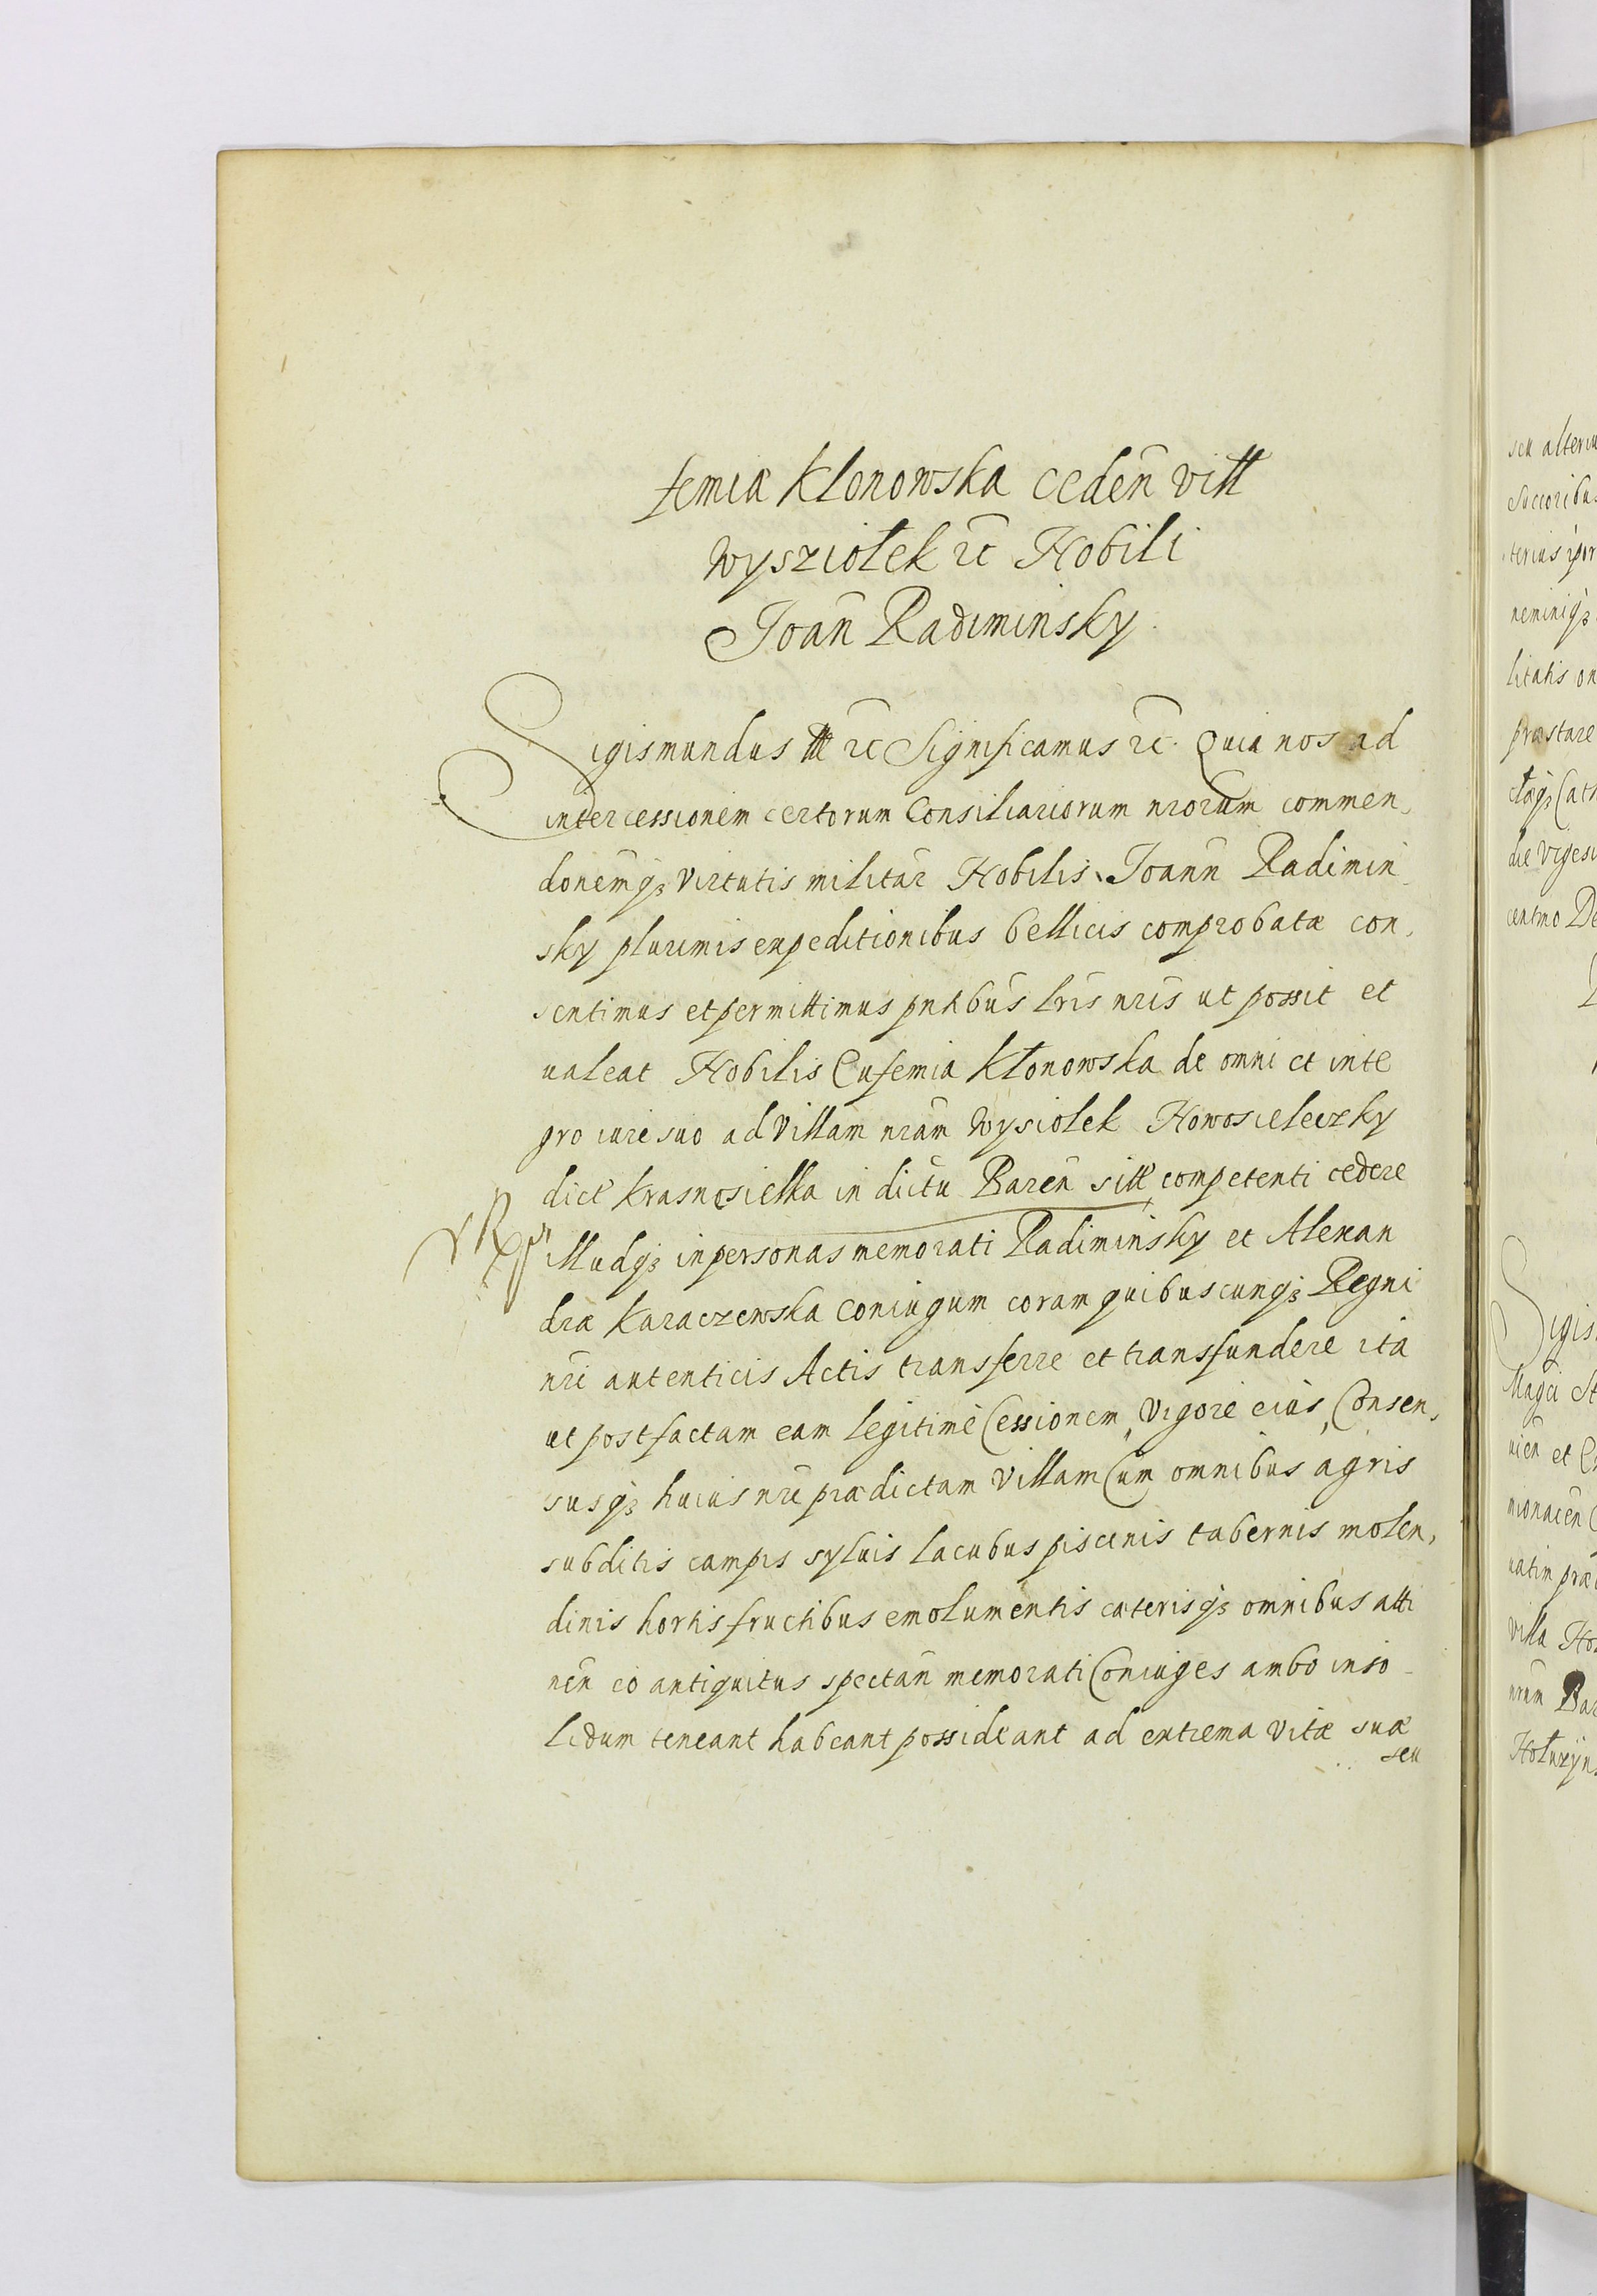 femia Klonowska ceden̄ vill
Wysziołek rc̄ Nobili
Joan̄ Radiminsky.
Sigismundus III rc̄ Significamus rc̄. Quia nos ad
intercessionem certorum Consiliariorum nrorum commen,
donem̄q₃ virtutis militar̄ Nobilis Joann̄ Radimin
sky plurimis expeditionibus bellicis comprobatæ con,
sentimus et permittimus pntibus lris nris ut possit et
ualeat Nobilis Eufemia Kłonowska de omni et inte
gro iure suo ad villam nram Wysiolek Nowosieleczky
dict Krasnosielka in dictu Baren̄ sitt competenti cedere
Illudq₃ in personas memorati Radiminsky et Alexan
dræ Karaczewska coniugum coram quibuscunq₃ Regni
nri autenticis Actis transferre et transfundere ita
ut post factam eam legitimè Cessionem, vigore eius, Consen,
susq₃ huius nri prædictam villam Cum omnibus agris
subditis campis syluis lacubus piscinis tabernis molen,
dinis hortis fructibus emolumentis cæterisq₃ omnibus atti
nen̄ eo antiquitus spectan̄ memorati Coniuges ambo in so
lidum teneant habeant possideant ad extrema vitæ suæ
seu
seu alteriu
Succoribus
terius ipor
neminiq₃
litatis on
præstare
die viges
centmo De
Sigis
Magci St
nien̄ et
monacen̄
uatim præ
villa No
nrum Bar